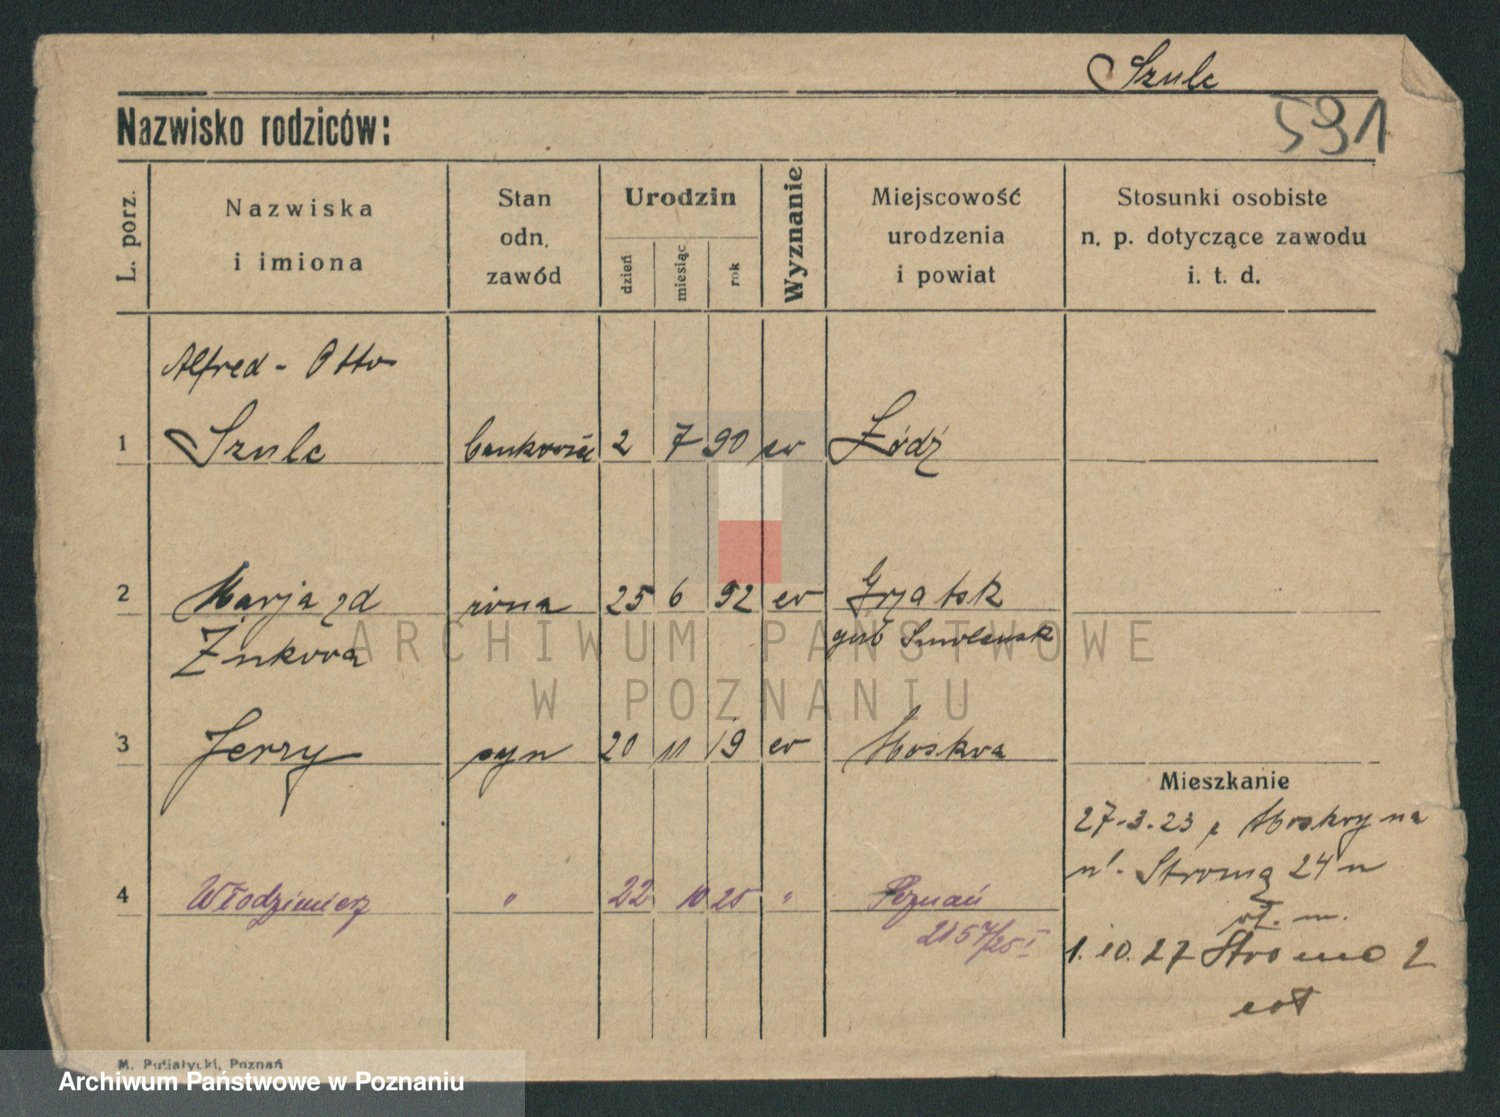 Szulc
Nazwisko rodziców:
591
L. porz.
Nazwiska
i imiona
Stan
odn.
zawód
Urodzin
dzień
miesiąc
rok
Wyznanie
Miejscowość
urodzenia
i powiat
Stosunki osobiste
n. p. dotyczące zawodu
i. t. d.
Alfred - Otto
1 Szulc 2 7 90 ew Łódź
2 Marja zd żona 25 6 92 ew Gżatsk
Żukowa gub Smolensk
3 Jerzy syn 20 11 19 ew Moskwa
Mieszkanie
27.3.23 z Moskwy na
ul. Stromą 24
4 Włodzimierz " 22 10 25 " Poznań
2157/25 I
1.10.27 Stroma 2
M. Putiatycki, Poznań
ARCHIWUM PAŃSTWOWE
W POZNANIU
Archiwum Państwowe w Poznaniu